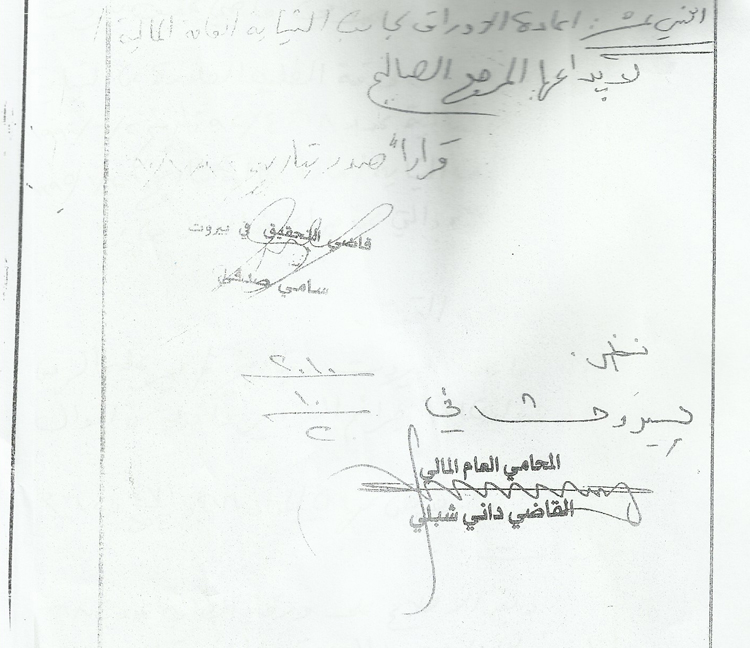 اثني عشر: اعادة الاوراق لجانب النيابة العامة المالية
لايداعها المرجع الصالح
قراراً صدر بتاريخ
قاضي التحقيق في بيروت
سامي صدقي
نظر:
٢٠١٠
بيروت في
١٠
٢
المحامي العام المالي
القاضي داني شبلي